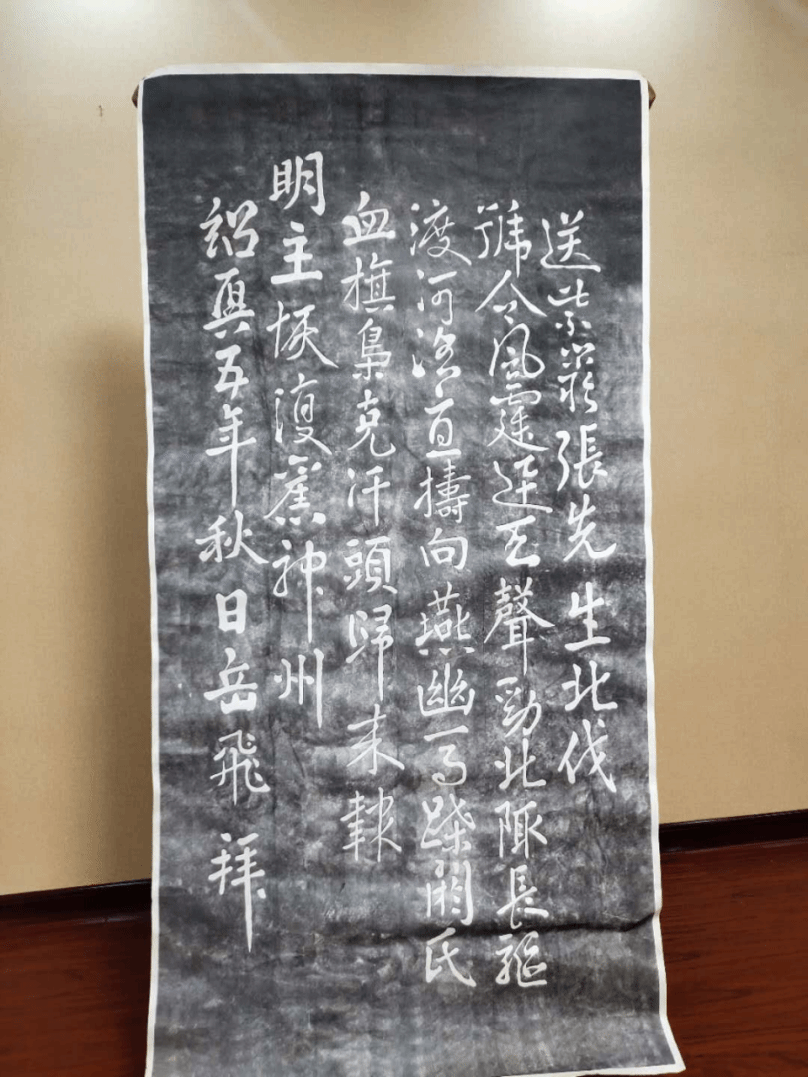 送紫巖張先生北伐
號令風霆迅天聲動北陬長驅
渡河洛直擣向燕幽馬蹀閼氏
血旗梟克汗頭歸來報
明主恢復舊神州
紹興五年秋日岳飛拜